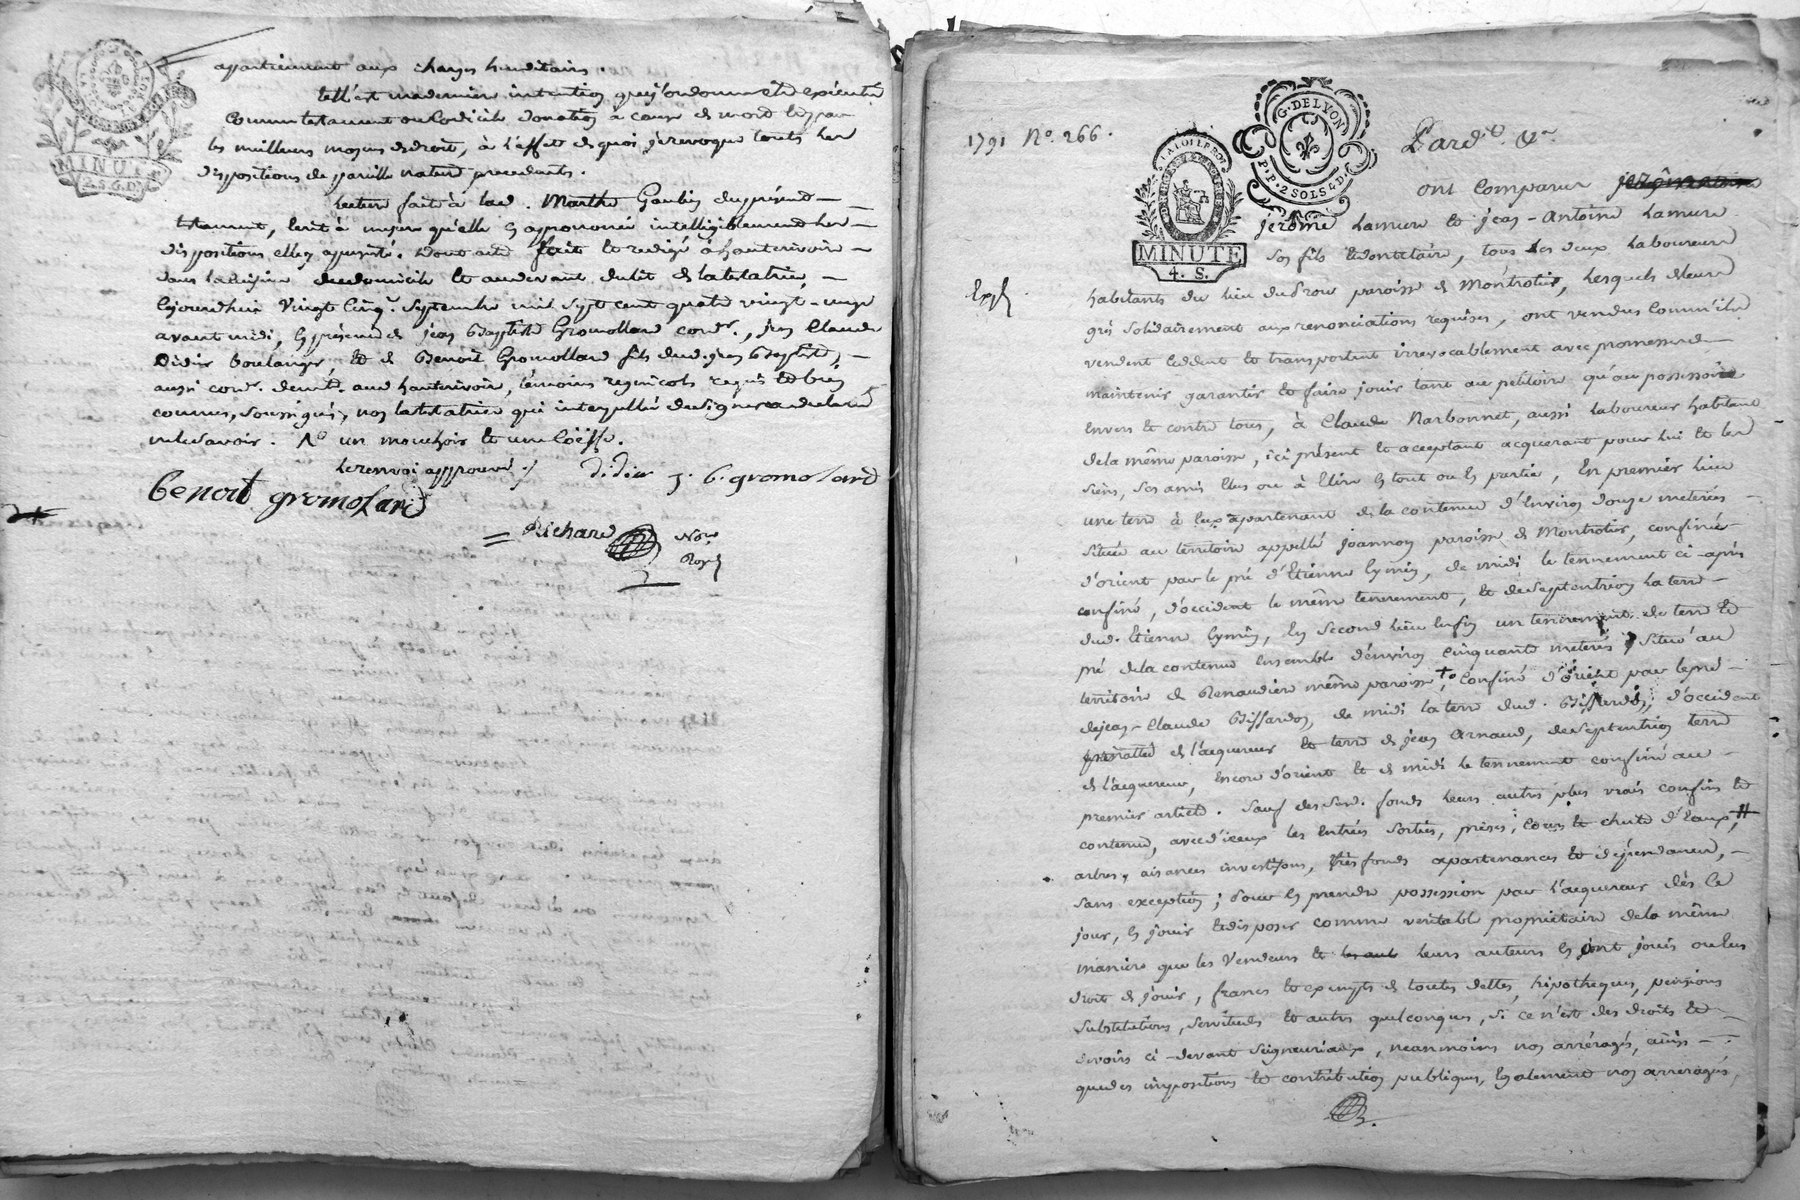 MINUTE
2. S. 6. D.
appartiennent aux charges héréditaires.
telle est ma derniere intention que j'ordonne être exécutée
comme testament ou codicile donnation à cause de mort et par
les meilleurs moyens de droit, à l'effet de quoi je revoque toutes les
dispositions de pareille nature precedentes.
Lecture faite à lad. Marthe Goubin du présent
testament, écrit à mesure qu'elle a prononcé intelligiblement ses
dispositions elle a persisté. dont acte fait et redigé à hauterivoire
dans la cuisine du domicile et au devant du lit de la testatrice,
cejourdhuy vingt cinq septembre mil sept cent quatre vingt-onze
avant midi, en présence de jean Baptiste Gromollard cordr., jean Claude
Didier boulanger, et de Benoit Gromollard fils dud. jean Baptiste,
aussi cordr. demt. aud. hauterivoire, témoins regnicoles requis et bien
connus, soussignés, non la testatrice qui interpellée de signer a declaré
ne le savoir. Nº un mouchoir et une coëffe.
le renvoi approuvé ./. didier J. b. gromolard
benoit gromolard
Richard Nore
Royl
1791 Nº. 266.
LA LOI LE ROI
MINUTE
4. S.
G. DE LYON
P. P. 2 SOLS 4 D.
Pard. &r
ont comparu
jerôme Lamure et jean-Antoine Lamure
son fils et donataire, tous les deux laboureurs
Expé
habitants du lieu du Prou paroisse de Montrotier, lesquels de leur
gré solidairement aux renonciations requises, ont vendus comm'ils
vendent cedent et transportent irrevocablement avec promesse de
maintenir garantir et faire jouir tant au petitoire qu'au possessoire
envers et contre tous, à Claude Narbonnet, aussi laboureur habitant
de la même paroisse, ici présent et acceptant acquerant pour lui et les
siens, ses amis élus ou à élire en tout ou en partie, En premier lieu
une terre à eux apartenant de la contenue d'environ douze meterées
située au territoire appellé Joannon paroisse de Montrotier, confinée
d'orient par le pré d'Etienne Eymin, de midi le tennement ci-après
confiné, d'occident le même tenement, et de septentrion la terre
dud. Etienne Eymin, En second lieu enfin un tennement de terre et
pré de la contenue ensemble d'environ cinquante meterées situé au
territoire de Renaudier même paroisse, confiné d'orient par le pré
de jean-Claude Bissardon, de midi la terre dud. Bissardon, d'occident
de l'acquereur et terre de jean Arnaud, de septentrion terre
de l'acquereur, encore d'orient et de midi le tennement confiné au
premier article. Sauf desdits fonds leurs autres plus vrais confins et
contenue, avec d'iceux les entrées sorties, prises, cours et chute d'eaux, #
arbres, aisances investisons, très fonds apartenances et dépendances,
sans exception; Pour en prendre possession par l'acquereur dès ce
jour, en jouir et disposer comme veritable proprietaire de la même
maniere que les vendeurs et leurs auteurs en ont jouis ou eus
droit de jouir, francs et exempts de toutes dettes, hipotheques, pensions
substitutions, servitudes et autres quelconques, si ce n'est des droits et
devoirs ci-devant seigneuriaux, neanmoins non arréragés, ainsi
que des impositions et contribution publiques, egalement non arreragés,